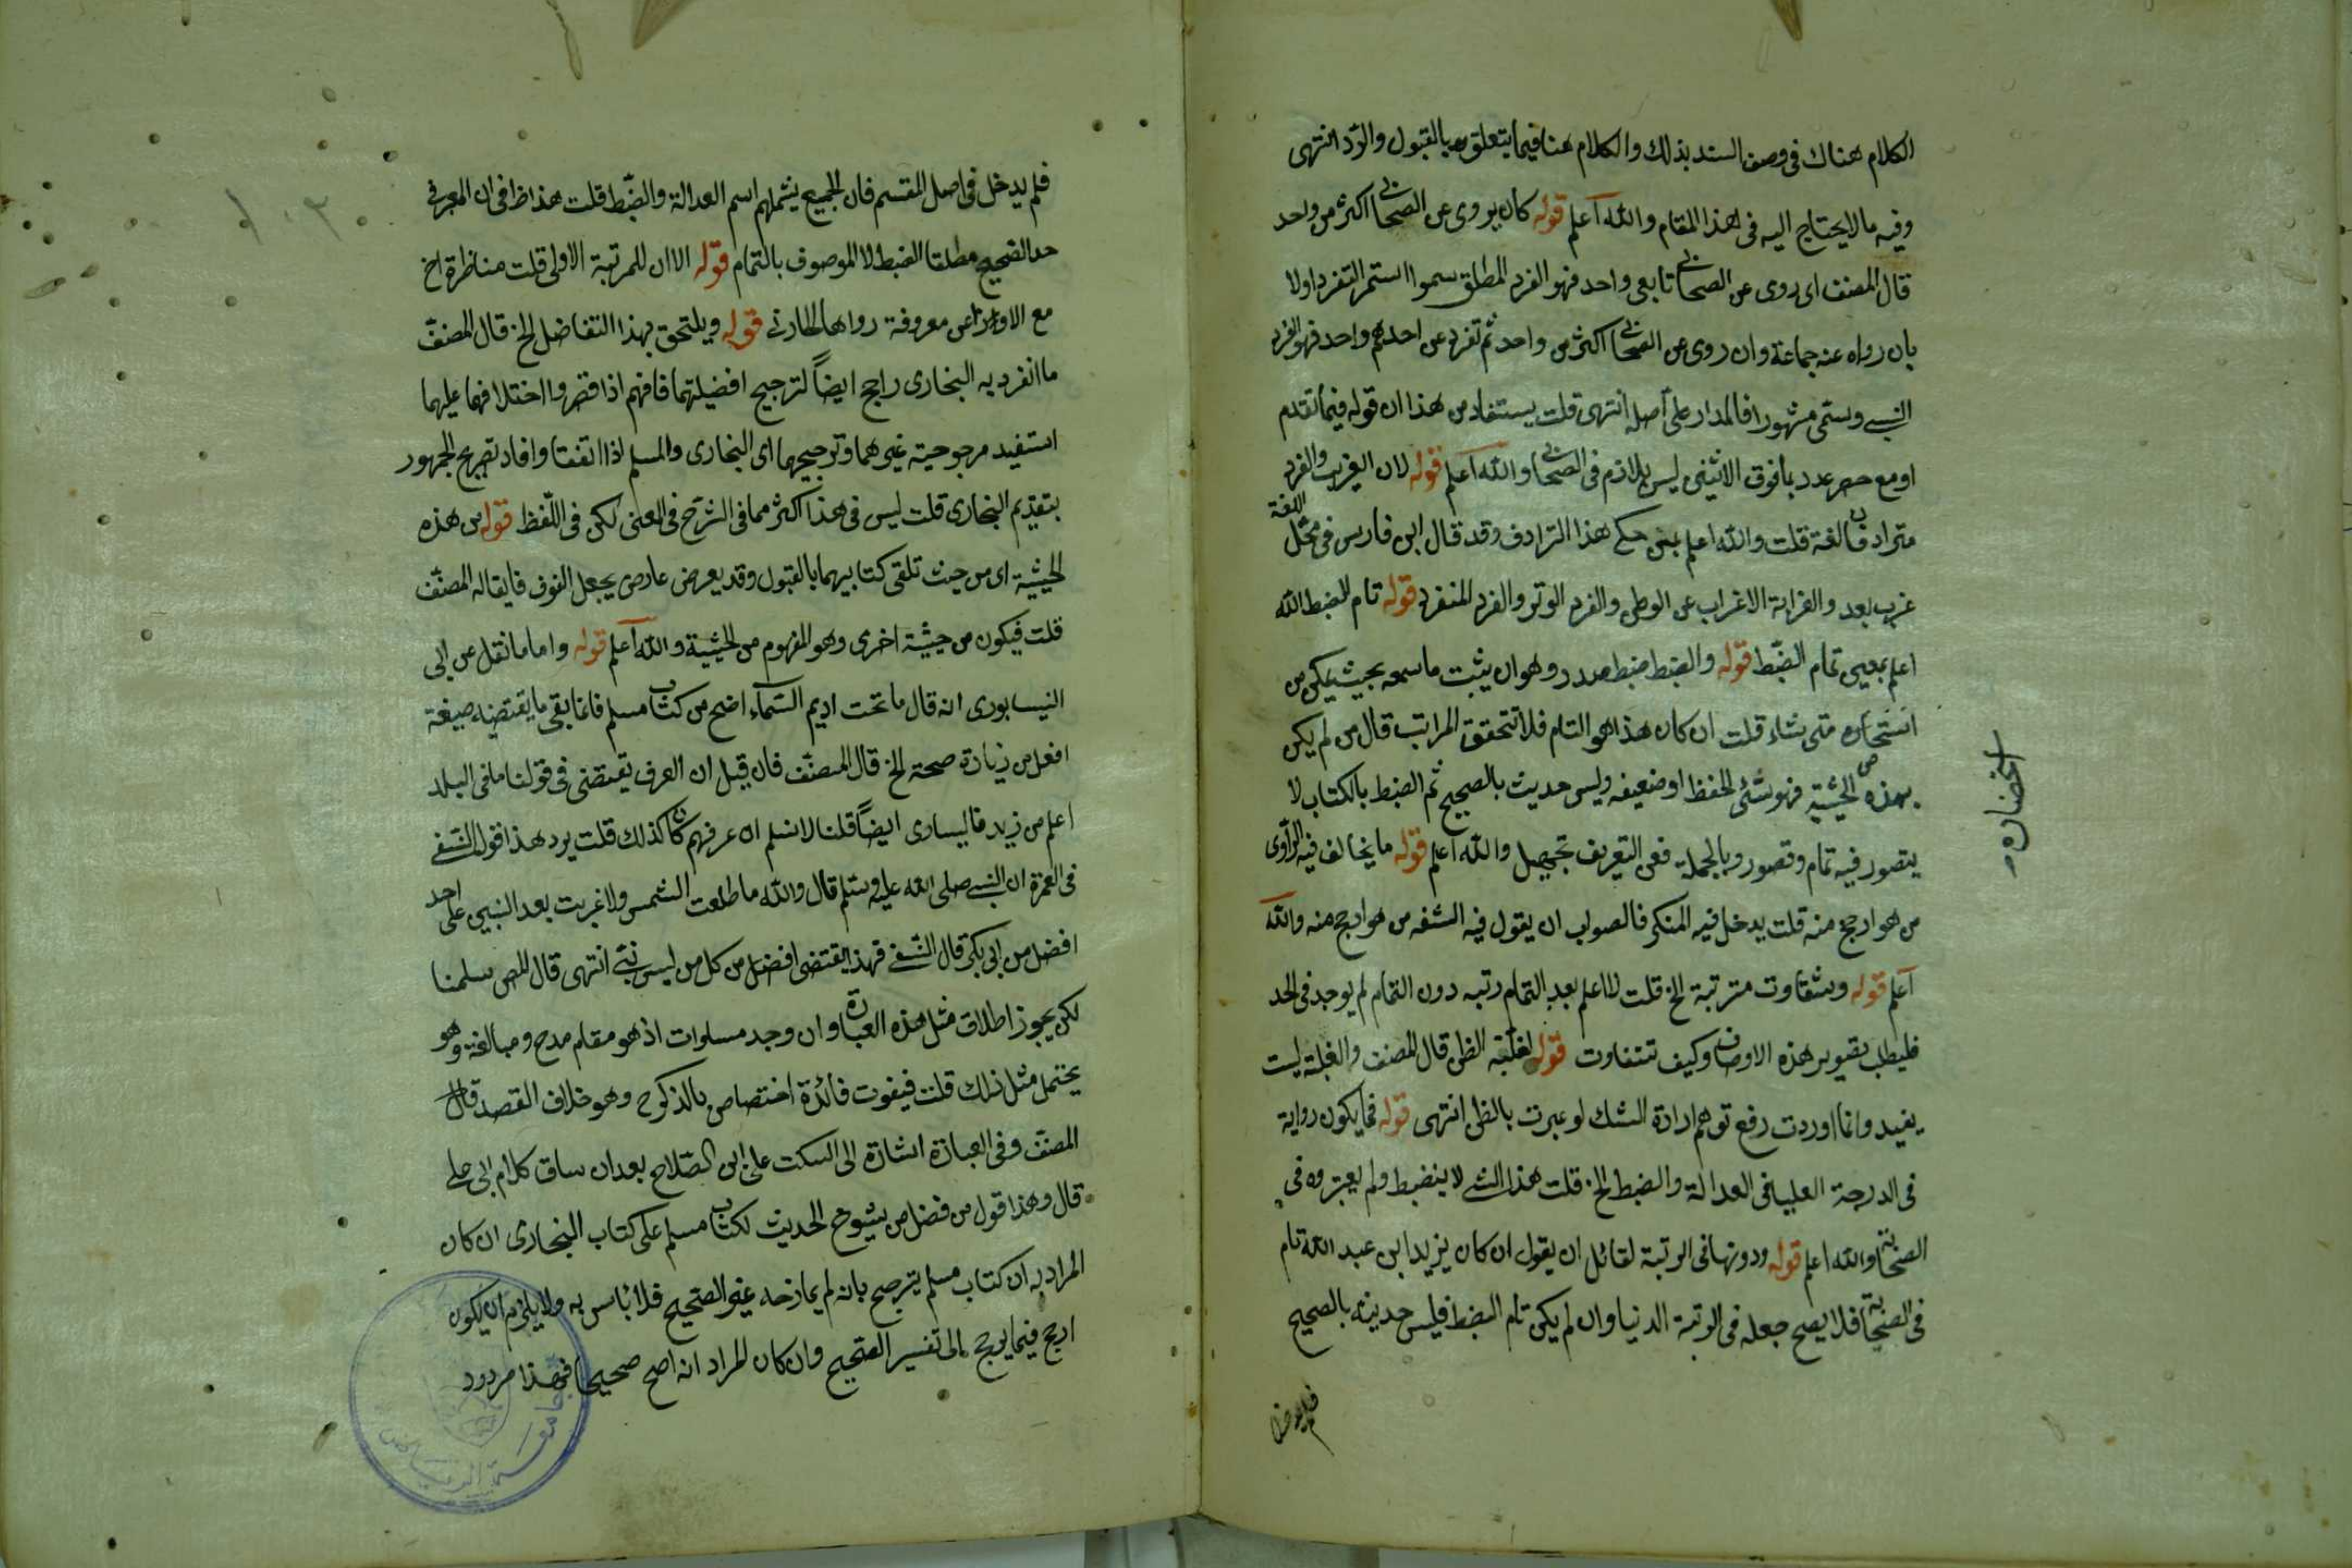 الكلام هناك فى وصف السند بذلك والكلام هنا فيما يتعلق به بالقبول والرد انتهى
وفيه ما لا يحتاج اليه فى هذا المقام والله اعلم قوله كان يروى عن الصحابى اكثر من واحد
قال المصنف اى روى عن الصحابى تابعى واحد فهو الفرد المطلق سموا استمر التفرد اولا
بان رواه عنه جماعة وان روى عن الصحابى اكثر من واحد ثم تفرد عن احدهم واحد فهو الفرد
النسبى ويسمى مشهورا فالمدار على اصله انتهى قلت يستفاد من هذا ان قوله فيما تقدم
او مع حصر عدد بما فوق الاثنين ليس بلازم فى الصحابى والله اعلم قوله لان الغريب والفرد
مترادفان لغة قلت والله اعلم بمن حكم هذا الترادف وقد قال ابن فارس فى مجمل اللغة
غرب بعد والغرابة الاغراب عن الوطن والفرد الوتر والفرد المنفرد قوله تام الضبط الله
اعلم بمعنى تمام الضبط قوله والضبط ضبط صدر وهو ان يثبت ما سمعه بحيث يتمكن من
استحضاره متى شاء قلت ان كان هذا هو التام فلا تتحقق المراتب قال من لم يكن
بهذه الحيثية فهو سيئ الحفظ او ضعيفه وليس حديث بالصحيح ثم الضبط بالكتاب لا
يتصور فيه تمام وقصور وبالجملة ففى التعريف تجهيل والله اعلم قوله ما يخالف فيه الراوى
من هو ارجح منه قلت يدخل فيه المنكر فالصواب ان يقول فيه الثقه من هو ارجح منه والله
اعلم قوله وتتفاوت مرتبة الخ قلت لا اعلم بعد التمام رتبه دون التمام لم يوجد فى الحد
فليطلب تصوير هذه الاوصاف وكيف تتفاوت قوله لغلبة الظن قال المصنف والغلبة ليست
بقيد وانما اوردت رفع توهم ارادة الشك لو عبرت بالظن انتهى قوله فما يكون رواية
فى الدرجة العليا فى العدالة والضبط الخ قلت هذا الشئ لا ينضبط ولم يعتبروه فى
الصحابة والله اعلم قوله ودونها فى الرتبة لقائل ان يقول ان كان يزيد ابن عبد الله تام
فى الصحابة فلا يصح جعله فى الرتبة الدنيا وان لم يكن تام الضبط فليس حديثه بالصحيح
فلم يدخل
استحضاره
فلم يدخل فى اصل المقسم فان الجميع يشملهم اسم العدالة والضبط قلت هذا ظ فى ان المعرف
حد الصحيح مطلقا الضبط لا الموصوف بالتمام قوله الا ان للمرتبة الاولى قلت مناظرة اخ
مع الاوزاعى معروفة رواها الحارثى قوله ويلتحق بهذا التفاضل الخ قال المصنف
ما انفرد به البخارى راجح ايضا لترجيح افضيلتهما فافهم اذا قصروا اختلافهما عليهما
استفيد مرجوحية غيرهما وترجيحهما اى البخارى والمسلم اذا اتفقا وافاد تصريح الجمهور
بتقديم البخارى قلت ليس فى هذا اكثر مما فى الشرح فى المعنى لكن فى اللفظ قوله من هذه
الحيثية اى من حيث تلقى كتابيهما بالقبول وقد يعرض عارض يجعل المفوق فايقا له المصنف
قلت فيكون من حيثية اخرى وهو المفهوم من الحيثية والله اعلم قوله واما ما نقل عن ابى
النيسابورى انه قال ما تحت اديم السماء اصح من كتاب مسلم فانما بقى ما يقتضيه صيغة
افعل من زيادة صحة الخ قال المصنف فان قيل ان العرف يقتضى فى قولنا ما فى البلد
اعلم من زيد فاليساوى ايضا قلنا لا نسلم ان عرفهم كان كذلك قلت يرد هذا قول النسفى
فى العمدة ان النبى صلى الله عليه وسلم قال والله ما طلعت الشمس ولا غربت بعد النبيين على احد
افضل من ابى بكر قال النسفى فهذا يقتضى افضل من كل من ليس بنبى انتهى قال المص سلمنا
لكن يجوز اطلاق مثل هذه العبارة وان وجد مساوات اذ هو مقام مدح ومبالغة وهو
يحتمل مثل ذلك قلت فيفوت فائدة اختصاص بالذكر وهو خلاف القصد قال
المصنف وفى العبارة اشارة الى السكت على ابن الصلاح بعد ان ساق كلام ابى على
قال وهذا قول من فضل من شيوخ الحديث لكتاب مسلم على كتاب البخارى ان كان
المراد به ان كتاب مسلم يترجح بانه لم يمازحه غير الصحيح فلا باس به ولا يلزم ان يكون
ارجح فيما يرجح الى تفسير الصحيح وان كان المراد انه اصح صحيحا فهذا مردود
جامعة الرياض